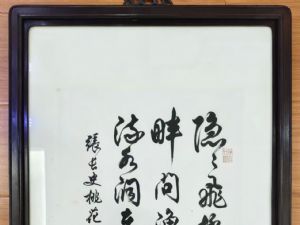 隐々飛橋
畔问渔
流水洞在
張長史桃花